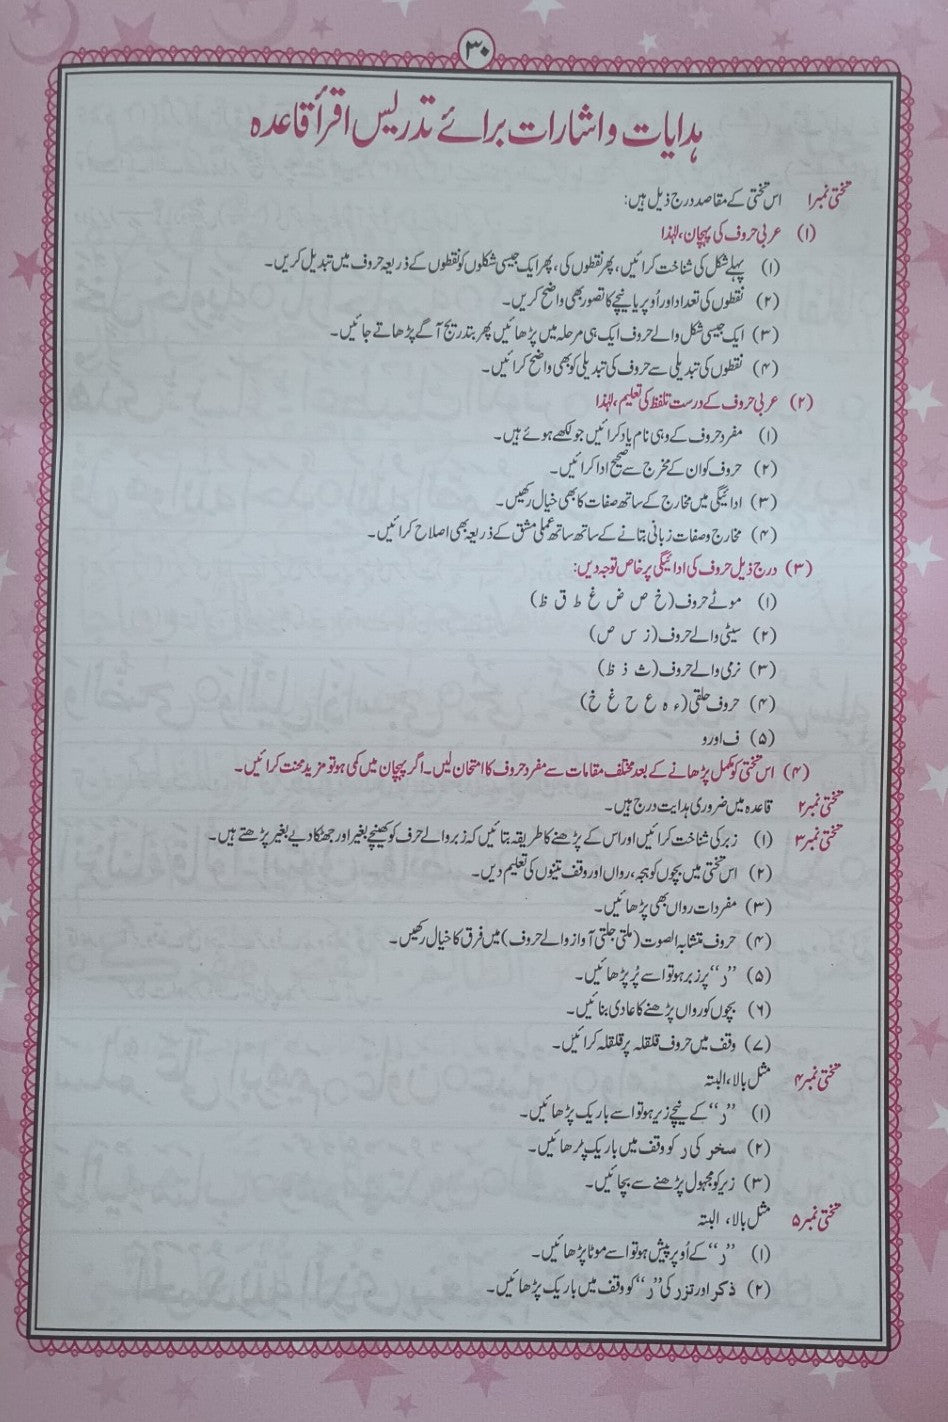 ۳۰
ہدایات و اشارات برائے تدریس اقرأ قاعدہ
تختی نمبر۱ اس تختی کے مقاصد درج ذیل ہیں:
(۱) عربی حروف کی پہچان، لہٰذا
(۱) پہلے شکل کی شناخت کرائیں، پھر نقطوں کی، پھر ایک جیسی شکلوں کو نقطوں کے ذریعہ حروف میں تبدیل کریں۔
(۲) نقطوں کی تعداد اور اُوپر یا نیچے کا تصور بھی واضح کریں۔
(۳) ایک جیسی شکل والے حروف ایک ہی مرحلہ میں پڑھائیں پھر بتدریج آگے پڑھاتے جائیں۔
(۴) نقطوں کی تبدیلی سے حروف کی تبدیلی کو بھی واضح کرائیں۔
(۲) عربی حروف کے درست تلفظ کی تعلیم، لہٰذا
(۱) مفرد حروف کے وہی نام یاد کرائیں جو لکھے ہوئے ہیں۔
(۲) حروف کو ان کے مخرج سے صحیح ادا کرائیں۔
(۳) ادائیگی میں مخارج کے ساتھ صفات کا بھی خیال رکھیں۔
(۴) مخارج و صفات زبانی بتانے کے ساتھ ساتھ عملی مشق کے ذریعہ بھی اصلاح کرائیں۔
(۳) درج ذیل حروف کی ادائیگی پر خاص توجہ دیں:
(۱) موٹے حروف (خ ص ض غ ط ق ظ)
(۲) سیٹی والے حروف (ز س ص)
(۳) نرمی والے حروف (ث ذ ظ)
(۴) حروف حلقی (ء ہ ع ح غ خ)
(۵) ف اور و
(۴) اس تختی کو مکمل پڑھانے کے بعد مختلف مقامات سے مفرد حروف کا امتحان لیں۔ اگر پہچان میں کمی ہو تو مزید محنت کرائیں۔
تختی نمبر۲ قاعدہ میں ضروری ہدایت درج ہیں۔
تختی نمبر۳ (۱) زبر کی شناخت کرائیں اور اس کے پڑھنے کا طریقہ بتائیں کہ زبر والے حرف کو کھینچے بغیر اور جھٹکا دیے بغیر پڑھتے ہیں۔
(۲) اس تختی میں بچوں کو ہجہ، رواں اور وقف تینوں کی تعلیم دیں۔
(۳) مفردات رواں بھی پڑھائیں۔
(۴) حروف متشابہ الصوت (ملتی جلتی آواز والے حروف) میں فرق کا خیال رکھیں۔
(۵) ”ر“ پر زبر ہو تو اسے پُر پڑھائیں۔
(۶) بچوں کو رواں پڑھنے کا عادی بنائیں۔
(۷) وقف میں حروف قلقلہ پر قلقلہ کرائیں۔
تختی نمبر۴ مثل بالا، البتہ
(۱) ”ر“ کے نیچے زیر ہو تو اسے باریک پڑھائیں۔
(۲) سخر کی ر کو وقف میں باریک پڑھائیں۔
(۳) زیر کو مجہول پڑھنے سے بچائیں۔
تختی نمبر۵ مثل بالا، البتہ
(۱) ”ر“ کے اُوپر پیش ہو تو اسے موٹا پڑھائیں۔
(۲) ذکر اور تزر کی ”ر“ کو وقف میں باریک پڑھائیں۔